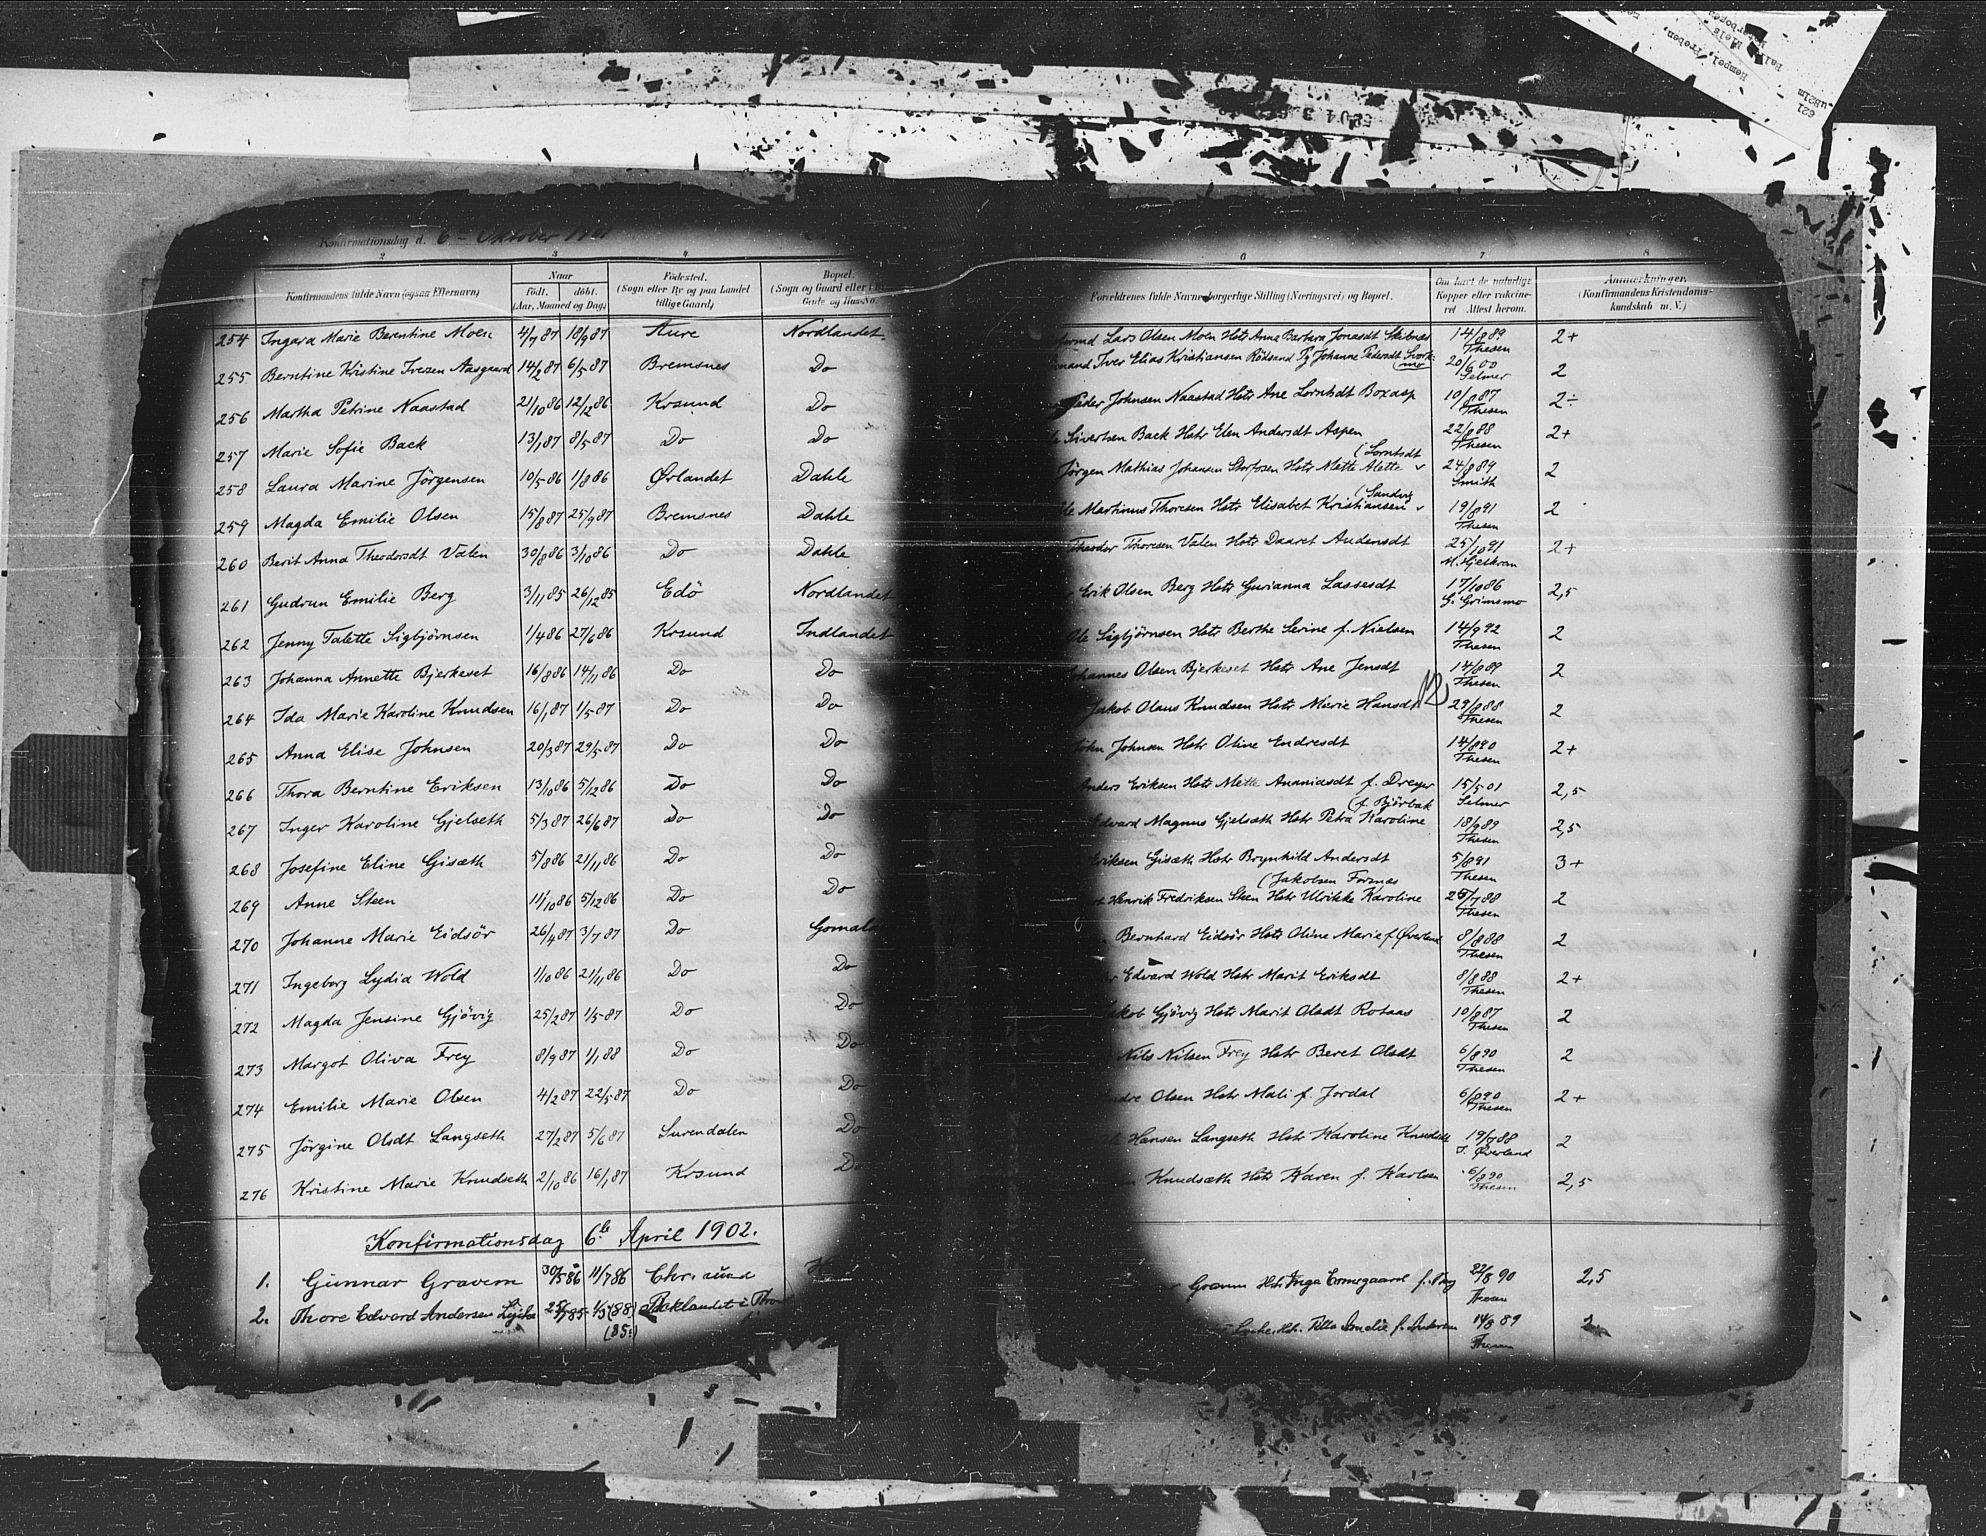 Konfirmationsdag d. 6 - Oktober 1901
2 3 4
Konfirmandens fulde Navn (ogsaa Efternavn)
Naar
födt. döbt.
(Aar, Maaned og Dag)
Födested.
(Sogn eller By og paa Landet
tillige Gaard)
Bopæl.
(Sogn og Gaard eller
Gade og Hus-No.
254 Ingara Marie Berntine Moen 4/7 87 18/9 87 Aure Nordlandet
255 Berntine Kristine Iversen Aasgaard 14/2 87 6/5 87 Bremsnes Do
256 Martha Petrine Naastad 21/10 86 12/12 86 Krsund Do
257 Marie Sofie Back 13/1 87 8/5 87 Do Do
258 Laura Marine Jörgensen 10/5 86 1/8 86 Ørlandet Dahle
259 Magda Emilie Olsen 15/8 87 25/9 87 Bremsnes Dahle
260 Berit Anna Theodorsdt Valen 30/8 86 3/10 86 Do Dahle
261 Gudrun Emilie Berg 3/11 85 26/12 85 Edö Nordlandet
262 Jenny Talette Sigbjörnsen 1/4 86 27/6 86 Krsund Indlandet
263 Johanna Annette Bjerkeset 16/8 86 14/11 86 Do Do
264 Ida Marie Karoline Knudsen 16/1 87 1/5 87 Do Do
265 Anna Elise Johnsen 20/3 87 29/5 87 Do Do
266 Thora Berntine Eriksen 13/10 86 5/12 86 Do Do
267 Inger Karoline Gjelseth 5/3 87 26/6 87 Do Do
268 Josefine Eline Gisæth 5/8 86 21/11 86 Do Do
269 Anne Steen 11/10 86 5/12 86 Do Do
270 Johanne Marie Eidsör 26/4 87 3/7 87 Do Gomal
271 Ingeborg Lydia Wold 1/10 86 21/11 86 Do Do
272 Magda Jensine Gjövig 25/2 87 1/5 87 Do Do
273 Margot Oliva Frey 8/9 87 1/1 88 Do Do
274 Emilie Marie Olsen 4/2 87 22/5 87 Do Do
275 Jörgine Olsdt Langseth 27/2 87 5/6 87 Surendalen Do
276 Kristine Marie Knudseth 2/10 86 16/1 87 Krsund Do
Konfirmationsdag 6te April 1902.
1. Gunnar Gravem 30/5 86 11/7 86 Chr.sund
2. Thore Edvard Andersen 85 1/3 (88)
(85.)
6 7 8
Forældrenes fulde Navne, borgerlige Stilling (Næringsvei) og Bopæl.
Om havt de naturlige
Kopper eller vakcine-
ret Attest herom.
Anmærkninger.
(Konfirmandens Kristendoms-
kundskab m. V.)
Lars Olsen Moen Hstr Anne Barbara Jonasdt Skibnæs 14/8 89 2+
Thesen
Iver Elias Kristiansen Rödsand Pg Johanne Pedersdt 20/6 00 2
(mo Selmer
Peder Johnsen Naastad Hstr Ane Lornhdt Boxasp 10/8 87 2÷
Thesen
Sivertsen Back Hstr Elen Andersdt Aspen 22/8 88 2+
Thesen
(Lorntsdt
Jörgen Mathias Johansen Storfosen Hstr Mette Alette 24/8 89 2
Smith
(Sandvig
Martinus Thoresen Hstr Elisabet Kristiansen 19/8 91 2
Thesen
Theodor Thoresen Valen Hstr Daaret Andersdt 25/10 91 2+
M. Hjelkrem
Erik Olsen Berg Hstr Gurianna Lassesdt 17/10 86 2,5
G. Grimsmo
Ole Sigbjörnsen Hstr Berthe Serine f. Nielsen 14/9 92 2
Thesen
Johannes Olsen Bjerkeset Hstr Ane Jensdt 14/8 89 2
Thesen
Jakob Olaus Knudsen Hstr Marie Hansdt 29/8 88 2
Thesen
John Johnsen Hstr Oline Endresdt 14/8 90 2+
Thesen
Anders Eriksen Hstr Mette Ananiasdt f. Dreyer 15/5 01 2,5
(f. Björbak Selmer
Edvard Magnus Gjelsæth Hstr Petra Karoline 18/9 89 2,5
Thesen
Eriksen Gisæth Hstr Brynhild Andersdt 5/8 91 3+
(Jakobsen Forsnæs Thesen
Henrik Fredriksen Steen Hstr Ulrikke Karoline 28/7 88 2
Thesen
Bernhard Eidsör Hstr Oline Marie f. Øverland 8/8 88 2
Thesen
Edvard Wold Hstr Marit Eriksdt 8/8 88 2+
Thesen
Jakob Gjövig Hstr Marit Olsdt Rotaas 10/8 87 2
Thesen
Nils Nilsen Frey Hstr Beret Olsdt 6/8 90 2
Thesen
Olsen Hstr Mali f. Jordal 6/8 90 2+
Thesen
Hansen Langseth Hstr Karoline Knudsdt 19/7 88 2
J. Øverland
Knudsæth Hstr Karen f. Karlsen 6/8 90 2,5
Thesen
Gravem Hst. Inga 22/8 90 2,5
Thesen
14/8 89 2
Thesen